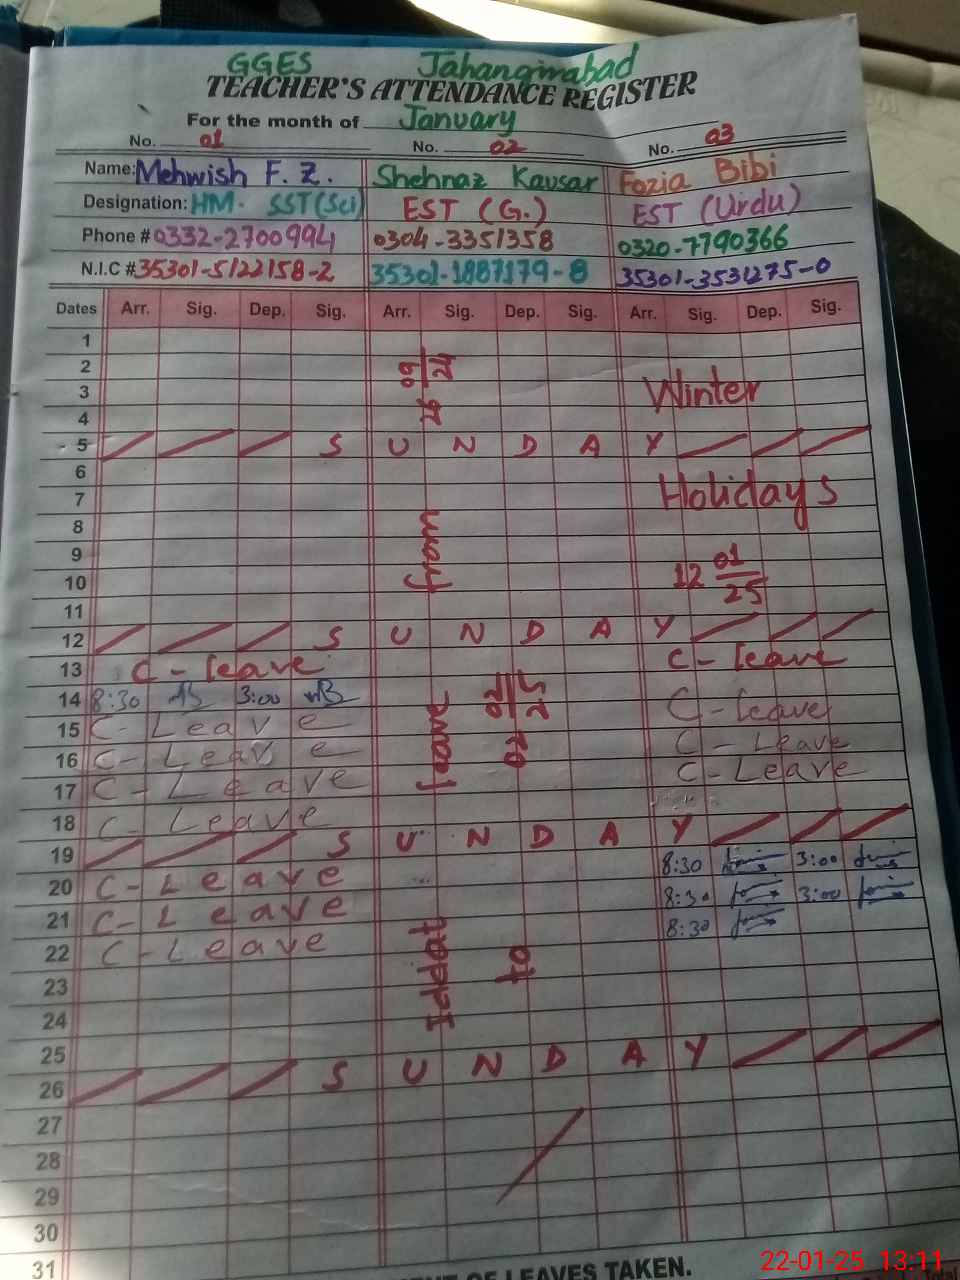 GGES Jahangirabad
TEACHER'S ATTENDANCE REGISTER
For the month of January
No. 01 No. 02 No. 03
Name: Mehwish F. Z. Shehnaz Kausar Fozia Bibi
Designation: HM. SST(Sci) EST (G.) EST (Urdu)
Phone # 0332-2700994 0304-3351358 0320-7790366
N.I.C # 35301-5122158-2 35301-1887179-8 35301-3531275-0
Dates Arr. Sig. Dep. Sig. Arr. Sig. Dep. Sig. Arr. Sig. Dep. Sig.
1
2
3 Winter
4
5 S U N D A Y
6
7 Holidays
8
9
10 12 01/25
11
12 S U N D A Y
13 C-leave C-leave
14 8:30 3:00 C-leave
15 C-Leave C-Leave
16 C-Leave C-Leave
17 C-Leave
18 C-Leave
19 S U N D A Y
20 C-Leave 8:30 3:00
21 C-Leave 8:30 3:00
22 C-Leave 8:30
23
24
25
26 S U N D A Y
27
28
29
30
31
Iddat leave from 26 09/24
to 02/25
OF LEAVES TAKEN.
22-01-25 13:11